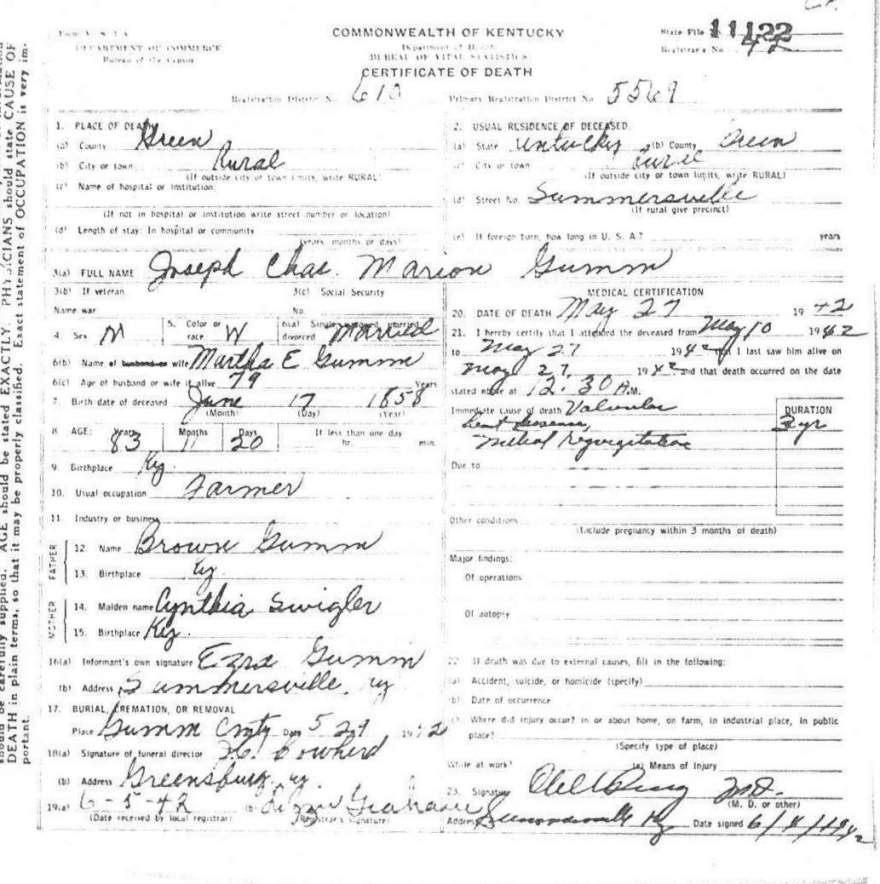 COMMONWEALTH OF KENTUCKY
State File No. 11122
DEPARTMENT OF COMMERCE
Bureau of the Census
Department of Health
BUREAU OF VITAL STATISTICS
Registrar's No. 42
CERTIFICATE OF DEATH
Registration District No. 610 Primary Registration District No. 5569
1. PLACE OF DEATH
(a) County Green
(b) City or town Rural
(If outside city or town limits, write RURAL)
(c) Name of hospital or institution
(If not in hospital or institution write street number or location)
(d) Length of stay: In hospital or community
(years, months or days)
2. USUAL RESIDENCE OF DECEASED
(a) State Kentucky (b) County Green
(c) City or town Rural
(If outside city or town limits, write RURAL)
(d) Street No. Summersville
(If rural give precinct)
(e) If foreign born, how long in U. S. A.? years
3(a) FULL NAME Joseph Chas. Marion Gumm
3(b) If veteran, 3(c) Social Security
Name war No.
4. Sex M 5. Color or race W 6(a) Single, widowed, married, divorced Married
6(b) Name of husband or wife Martha E Gumm
6(c) Age of husband or wife if alive 79 Years
7. Birth date of deceased June 17 1858
(Month) (Day) (Year)
8. AGE: Years Months Days If less than one day
83 11 20 hr. min.
9. Birthplace Ky.
10. Usual occupation Farmer
11. Industry or business
FATHER
12. Name Brown Gumm
13. Birthplace Ky
MOTHER
14. Maiden name Cynthia Swigler
15. Birthplace Ky.
16(a) Informant's own signature Ezra Gumm
(b) Address Summersville, Ky
17. BURIAL, CREMATION, OR REMOVAL
Place Gumm Cmty Date 5 29 1942
18(a) Signature of funeral director Cowherd
(b) Address Greensburg, Ky
19(a) 6-5-42 (b) Lizzie Graham
(Date received by local registrar) (Registrar's signature)
MEDICAL CERTIFICATION
20. DATE OF DEATH May 27 1942
21. I hereby certify that I attended the deceased from May 10 1942
to May 27 1942 that I last saw him alive on
May 27, 1942 and that death occurred on the date
stated above at 12:30 A.M.
Immediate cause of death Valvular
heart disease,
Mitral Regurgitation
DURATION
3 yr
Due to
Other conditions
(Include pregnancy within 3 months of death)
Major findings:
Of operations
Of autopsy
22. If death was due to external causes, fill in the following:
(a) Accident, suicide, or homicide (specify)
(b) Date of occurrence
(c) Where did injury occur? in or about home, on farm, in industrial place, in public
place?
(Specify type of place)
While at work? (e) Means of Injury
23. Signature M.D.
(M. D. or other)
Address Ky Date signed 6/4/1942
should be carefully supplied. AGE should be stated EXACTLY. PHYSICIANS should state CAUSE OF
DEATH in plain terms, so that it may be properly classified. Exact statement of OCCUPATION is very im-
portant.